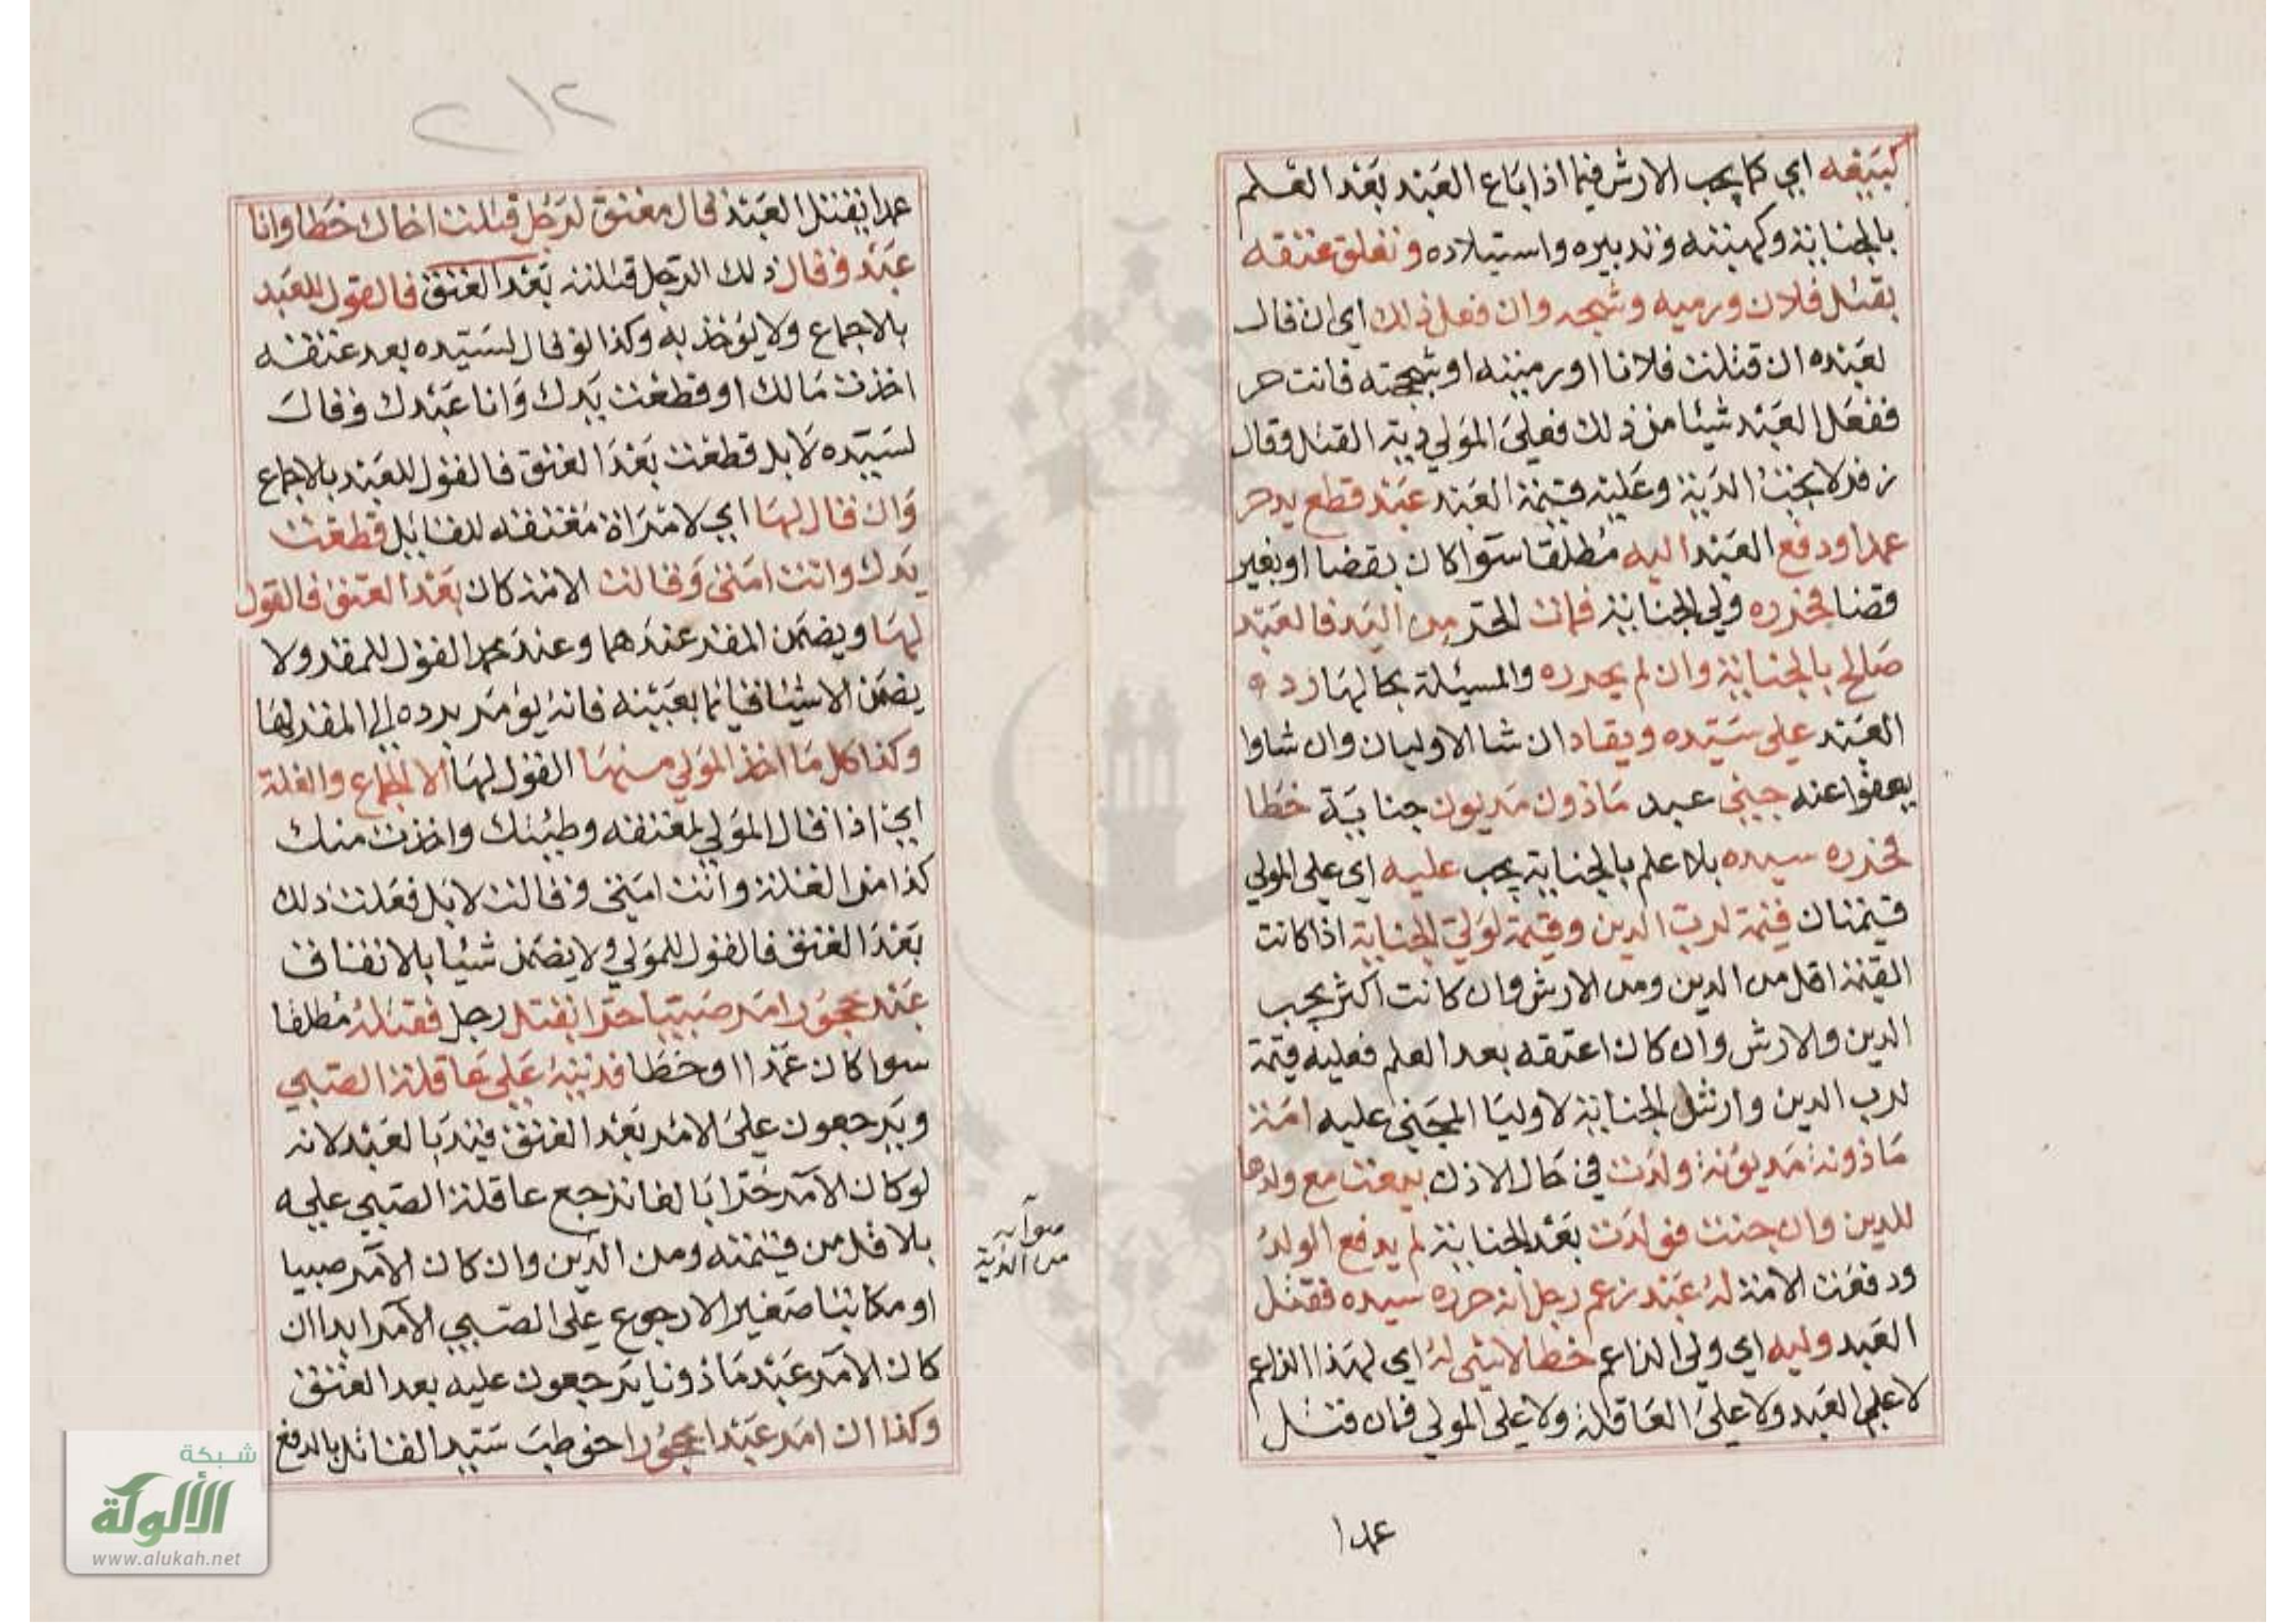 كبيعه اي كما يجب الارش فيما اذا باع العبد بعد العلم
بالجناية وكهبته وتدبيره واستيلاده وتعلق عتقه
بقتل فلان ورميه وشجه وان فعل ذلك اي ان قال
لعبده ان قتلت فلانا او رميته او شججته فانت حر
ففعل العبد شيئا من ذلك فعلى المولي دية القتل وقال
زفر لا يجب الدية وعليه قيمة العبد عبد قطع يد حر
عمدا ودفع العبد اليه مطلقا سوا كان بقضا او بغير
قضا فحرره ولي الجناية فمات المحرر من اليد فالعبد
صالح بالجناية وان لم يحرره والمسيلة بحالها رد
العبد على سيده ويقاد ان شا الاوليان وان شاوا
يعفوا عنه جيني عبد ماذون مديون جناية خطا
فحرره سيده بلا علم بالجناية يجب عليه اي على المولي
قيمتان قيمة لرب الدين وقيمة لولي الجناية اذا كانت
القيمة اقل من الدين ومن الارش وان كانت اكثر يجب
الدين والارش وان كان اعتقه بعد العلم فعليه قيمة
لرب الدين وارش الجناية لاوليا المجني عليه امة
ماذونة مديونة ولدت في حال الاذن بيعت مع ولدها
للدين وان جنت فولدت بعد الجناية لم يدفع الولد
ودفعت الامة له عبد زعم رجل انه حرره سيده فقتل
العبد وليه اي ولي الزاعم خطا لا شي له اي لهذا الزاعم
لا على العبد ولا على العاقلة ولا على المولي فان قتل
عمدا
٢١٢
عمدا يقتل العبد قال معتق لرجل قتلت اخاك خطا وانا
عبد وقال ذلك الرجل قتلته بعد العتق فالقول للعبد
بالاجماع ولا يؤخذ به وكذا لو قال لسيده بعد عتقه
اخذت مالك او قطعت يدك وانا عبدك وقال
لسيده لا بل قطعت بعد العتق فالقول للعبد بالاجماع
وان قال لها اي لامراة معتقته للقايل قطعت
يدك وانت امتي وقالت الامة كان بعد العتق فالقول
لها ويضمن المقر عندهما وعند محمد القول للمقر ولا
يضمن الا شيئا قيانما بعينه فانه يؤمر برده الى المقر لها
وكذا كل ما اخذ المولي منها القول لها الا الجماع والغلة
اي اذا قال المولي لمعتقته وطيتك واخذت منك
كذا من الغلة وانت امتي وقالت لا بل فعلت ذلك
بعد العتق فالقول للمولي ولا يضمن شيئا بالاتفاق
عبد محجور امر صبيا حرا بقتل رجل فقتله مطلقا
سوا كان عمدا او خطا فديته على عاقلة الصبي
ويرجعون على الامر بعد العتق قيد بالعبد لانه
لو كان الآمر حرا بالغا ترجع عاقلة الصبي عليه
بلا قل من قيمته ومن الدين وان كان الآمر صبيا
صوابه
من الدية
او مكاتبا صغيرا لا رجوع على الصبي الآمر ابدا ان
كان الآمر عبد ماذونا يرجعون عليه بعد العتق
وكذا ان امر عبدا محجورا خوطب سيد القاتل بالدفع
شبكة
الألوكة
www.alukah.net